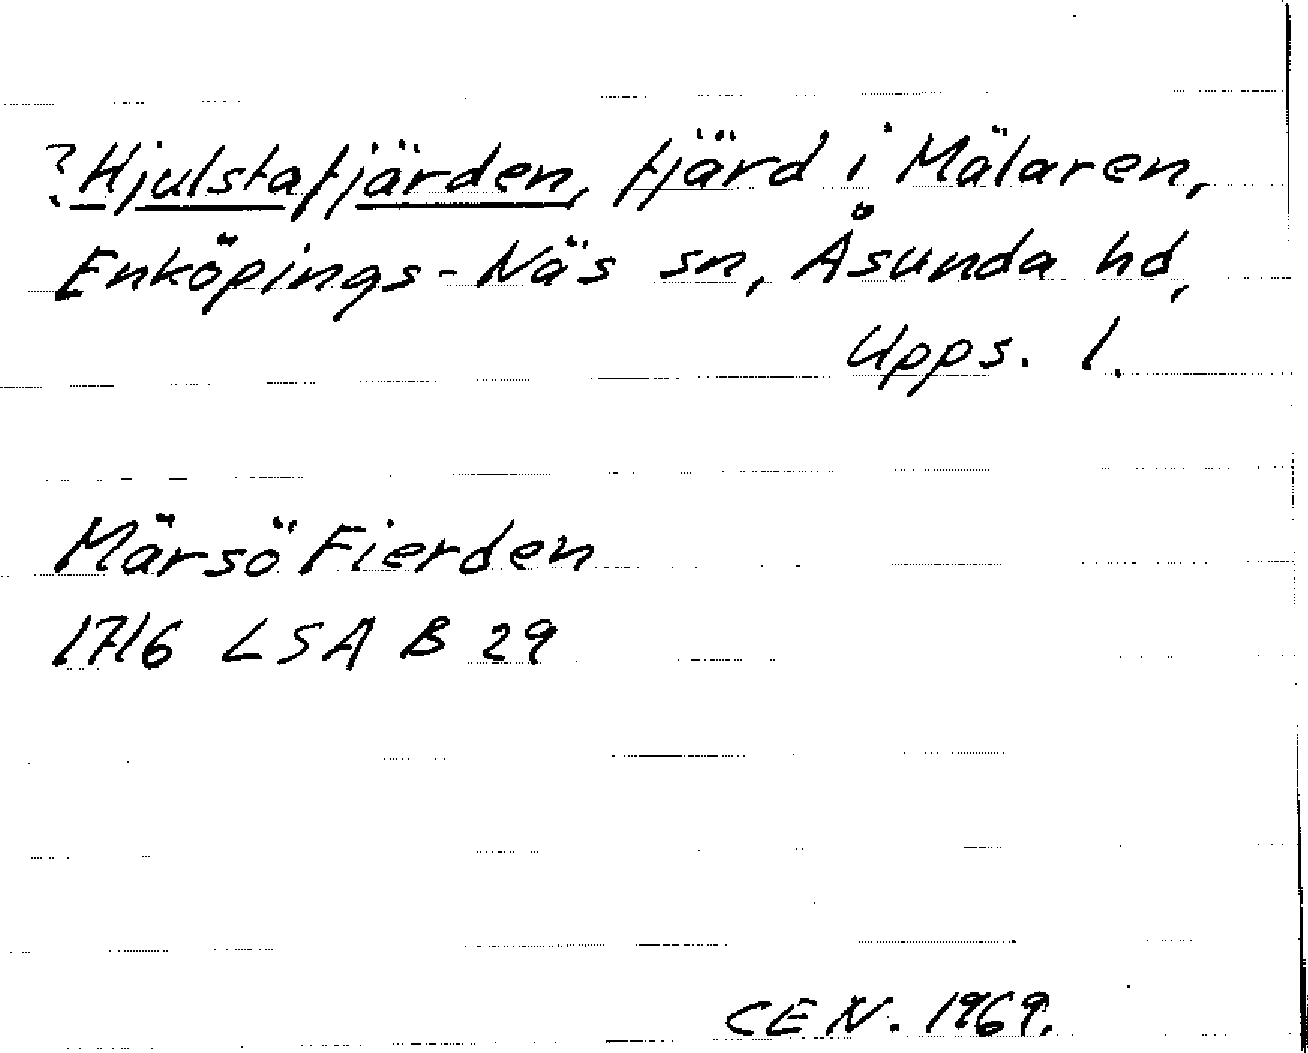 ?Hjulstafjärden, fjärd i Mälaren,
Enköpings-Näs sn, Åsunda hd,
Upps. l.
Märsö Fierden
1716 LSA B 29
CEN. 1969.